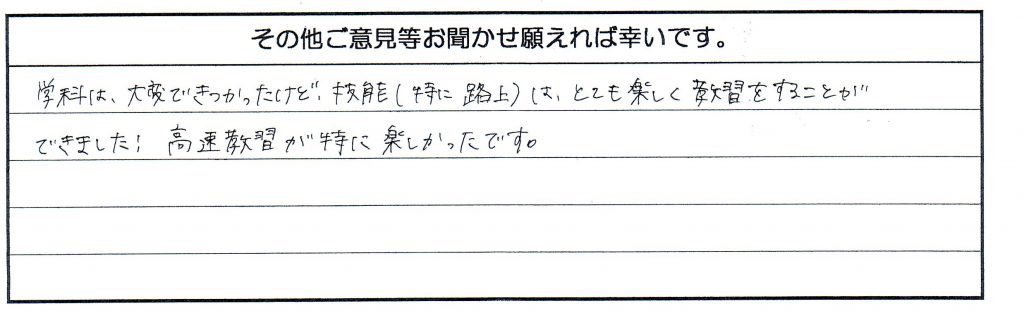 その他ご意見等お聞かせ願えれば幸いです。
学科は、大変できつかったけど、技能(特に路上)は、とても楽しく教習をすることが
できました! 高速教習が特に楽しかったです。